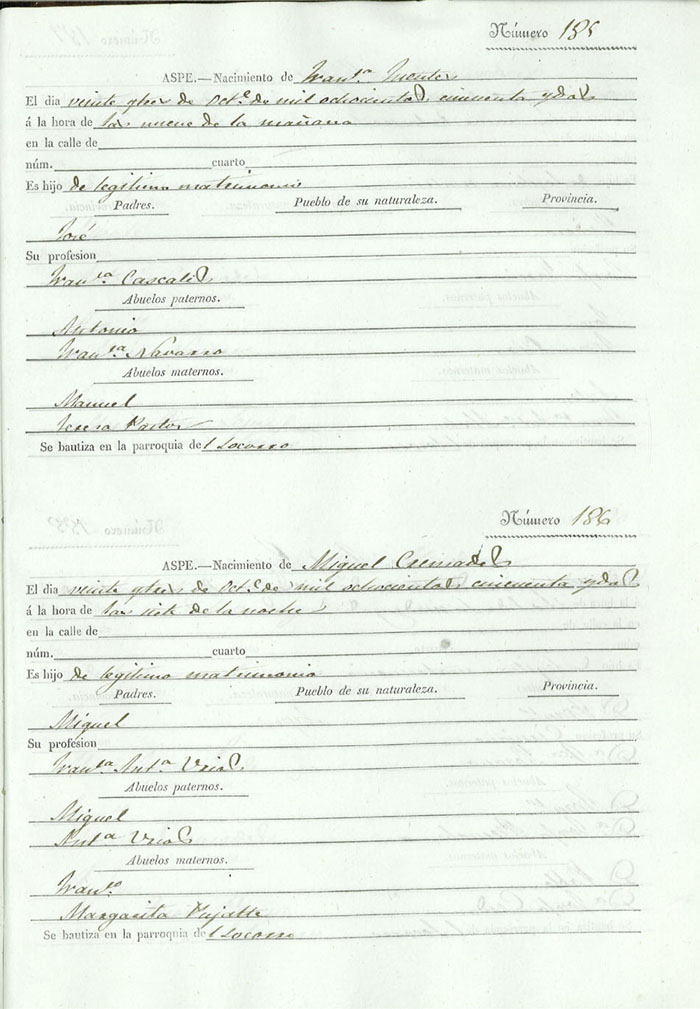 Número 185
ASPE.—Nacimiento de Fran.ca
El dia veinte y tres de Oct.e de mil ochocientos cincuenta y dos
á la hora de las nueve de la mañana
en la calle de
núm. cuarto
Es hijo de legitimo matrimonio
Padres. Pueblo de su naturaleza. Provincia.
José
Su profesion
Fran.ca Cascales
Abuelos paternos.
Antonio
Fran.ca Navarro
Abuelos maternos.
Manuel
Teresa Pastor
Se bautiza en la parroquia del Socorro
Número 186
ASPE.—Nacimiento de Miguel Cremades
El dia veinte y tres de Oct.e de mil ochocientos cincuenta y dos
á la hora de las siete de la noche
en la calle de
núm. cuarto
Es hijo de legitimo matrimonio
Padres. Pueblo de su naturaleza. Provincia.
Miguel
Su profesion
Fran.ca Ant.a
Abuelos paternos.
Miguel
Ant.a
Abuelos maternos.
Fran.co
Margarita
Se bautiza en la parroquia del Socorro